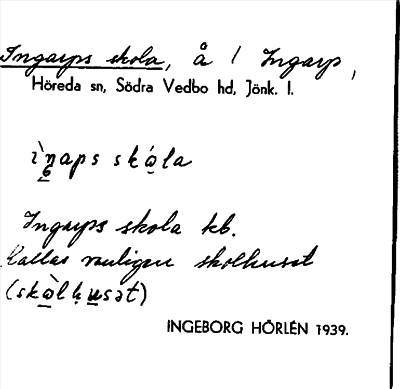 Ingarps skola, å / Ingarp,
Höreda sn, Södra Vedbo hd, Jönk. l.
ìŋaps skώla
Ingarps skola kb.
Kallas vanligen skolhuset
(skὼlhu̲sət)
INGEBORG HÖRLÉN 1939.